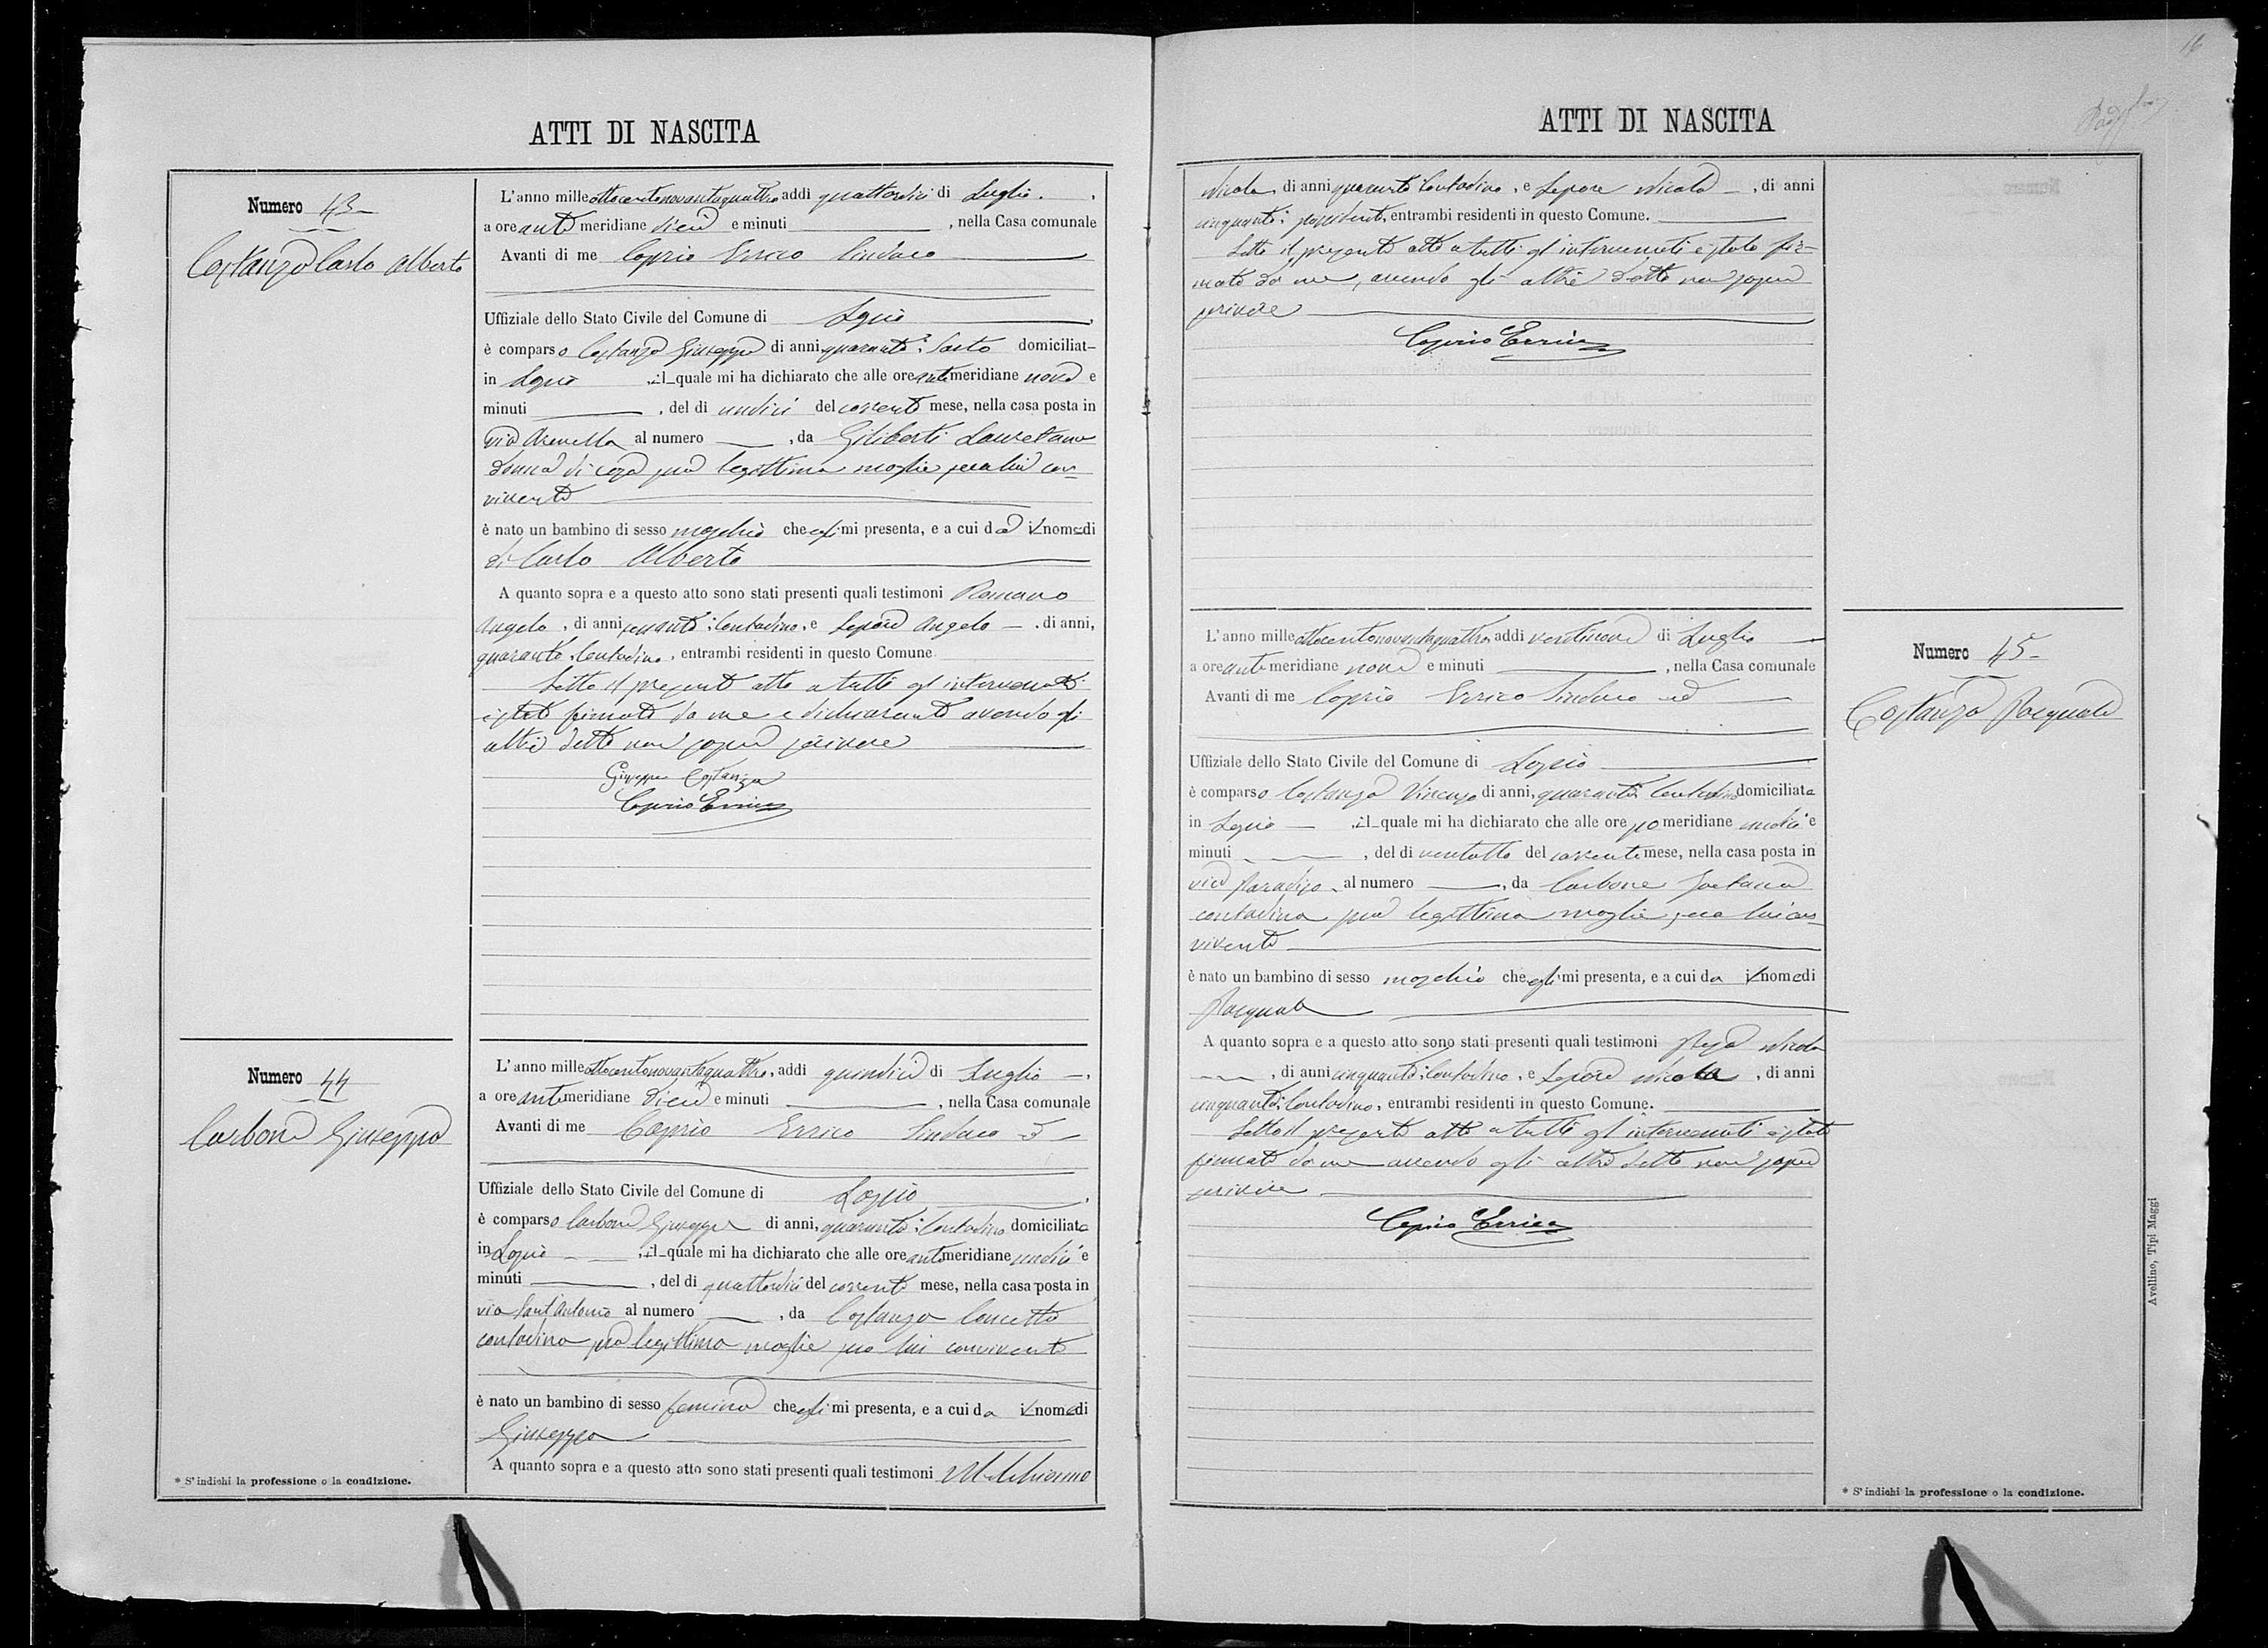 ATTI DI NASCITA
Numero 43
Costanza Carlo Alberto
L'anno mille ottocentonovantaquattro addì quattordici di Luglio.
a ore anti meridiane dieci e minuti , nella Casa comunale
Avanti di me Caprio Errico Sindaco
Uffiziale dello Stato Civile del Comune di
è comparso Costanza Giuseppe di anni quaranta Sarto domiciliat
in , il quale mi ha dichiarato che alle ore anti meridiane nove e
minuti , del dì undici del corrente mese, nella casa posta in
via Arenella al numero , da Giliberti Lauretana
donna di casa sua legittima moglie seco lui con-
vivente
è nato un bambino di sesso maschio che egli mi presenta, e a cui dà il nome di
di Carlo Alberto
A quanto sopra e a questo atto sono stati presenti quali testimoni Romano
Angelo, di anni contadino, e Lepore Angelo , di anni,
quaranta, contadino, entrambi residenti in questo Comune
Letto il presente atto a tutti gl'intervenuti
è stato firmato da me e dichiarante avendo gli
altri detto non sapere scrivere
Giuseppe Costanza
Caprio Errico
Numero 44
Carbone Giuseppa
L'anno mille ottocentonovantaquattro, addì quindici di Luglio
a ore anti meridiane dieci e minuti , nella Casa comunale
Avanti di me Caprio Errico Sindaco ed
Uffiziale dello Stato Civile del Comune di
è comparso Carbone Giuseppe di anni, quaranta contadino domiciliato
in , il quale mi ha dichiarato che alle ore anti meridiane undici e
minuti , del dì quattordici del corrente mese, nella casa posta in
via Sant'Antonio al numero , da Costanza Concetta
contadina sua legittima moglie seco lui convivente
è nato un bambino di sesso femina che egli mi presenta, e a cui da il nome di
Giuseppa
A quanto sopra e a questo atto sono stati presenti quali testimoni Melchionno
* S'indichi la professione o la condizione.
16
ATTI DI NASCITA
Nicola, di anni quaranta contadino, e Lepore Nicola , di anni
cinquanta possidente, entrambi residenti in questo Comune.
Letto il presente atto a tutti gl'intervenuti è stato fir-
mato da me, avendo gli altri detto non sapere
scrivere
Caprio Errico
L'anno mille ottocentonovantaquattro, addì ventinove di Luglio
a ore anti meridiane nove e minuti , nella Casa comunale
Avanti di me Caprio Errico Sindaco ed
Uffiziale dello Stato Civile del Comune di
è comparso Costanza Vincenzo di anni, quaranta contadino domiciliato
in , il quale mi ha dichiarato che alle ore po meridiane undici e
minuti , del dì ventotto del corrente mese, nella casa posta in
vico Paradiso al numero , da Carbone Gaetana
contadina sua legittima moglie, seco lui con-
vivente
è nato un bambino di sesso maschio che egli mi presenta, e a cui da il nome di
Pasquale
A quanto sopra e a questo atto sono stati presenti quali testimoni Nicola
, di anni cinquanta contadino, e Lepore Nicola , di anni
cinquanta contadino, entrambi residenti in questo Comune.
Letto il presente atto a tutti gl'intervenuti è stato
firmato da me avendo gli altri detto non sapere
scrivere
Caprio Errico
Numero 45
Costanza Pasquale
* S'indichi la professione o la condizione.
Avellino, Tipi Maggi